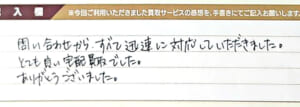 入欄 ※今回ご利用いただきました買取サービスの感想を、手書きにてご記入お願いします。
問い合わせから、すべて迅速に対応していただきました。
とても良い宅配買取でした。
ありがとうございました。